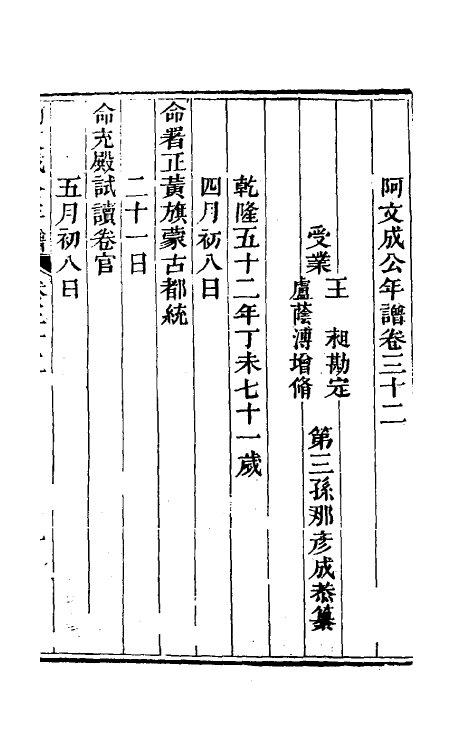 阿文成公年譜卷三十二
第三孫那彥成恭纂
受業
王昶勘定
盧蔭溥增脩
乾隆五十二年丁未七十一歲
四月初八日
命署正黃旗蒙古都統
二十一日
命充殿試讀卷官
五月初八日